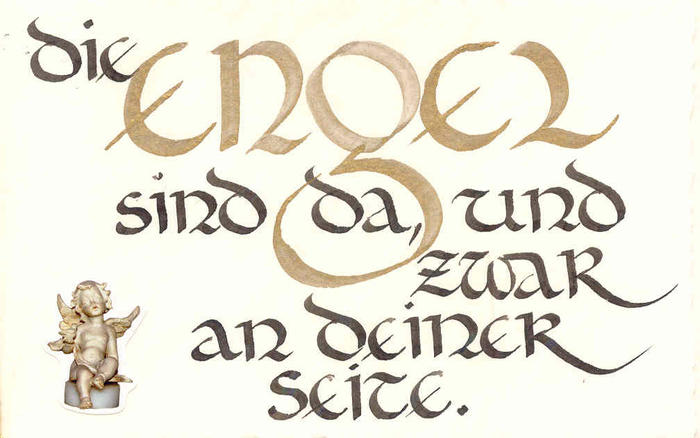 die ENGEL
sind da, und
zwar
an deiner
seite.